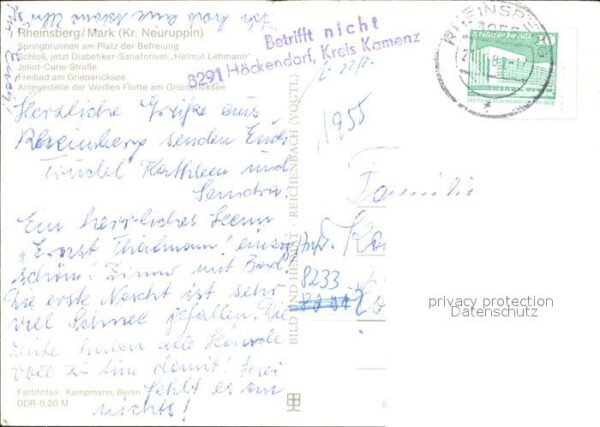 Rheinsberg/Mark (Kr. Neuruppin)
Springbrunnen am Platz der Befreiung
Schloß, jetzt Diabetiker-Sanatorium „Helmut Lehmann“
Joliot-Curie-Straße
Freibad am Grienericksee
Anlegestelle der Weißen Flotte am Grienericksee
Herzliche Grüße aus
Rheinsberg senden Euch
Trudel Kathleen und
Sandra.
Ein herrliches Heim
„Ernst Thälmann! einzig
schön! Zimmer mit Bad.
Die erste Nacht ist sehr
viel Schnee gefallen. Die
Leute haben alle Hände
voll zu tun damit!
fehlt es an
nichts!
Farbfotos: Kampmann, Berlin
DDR 0,20 M
BILD UND HEIMAT REICHENBACH (VOGTL)
Betrifft nicht
8291 Höckendorf, Kreis Kamenz
1955
RHEINSBERG
Familie
8233
privacy protection
Datenschutz